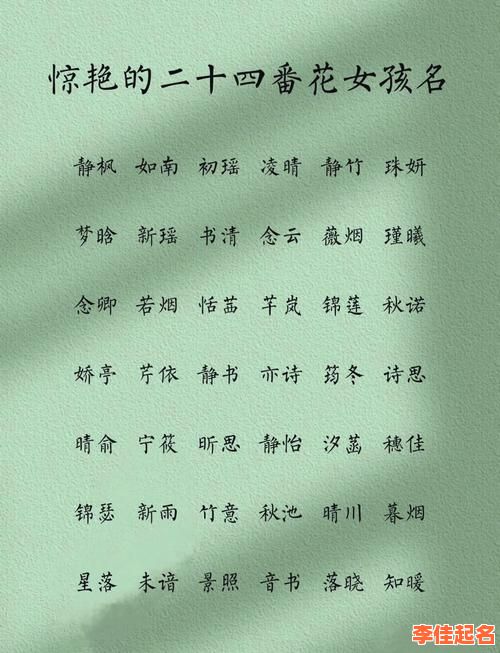 惊艳的二十四番花女孩名
静枫 如南 初瑶 凌晴 静竹 珠妍
梦晗 新瑶 书清 念云 薇烟 瑾曦
念卿 若烟 恬茁 芊岚 锦莲 秋诺
娇亭 芹依 静书 亦诗 筠冬 诗思
晴俞 宁筱 昕思 静怡 汐菡 穗佳
锦瑟 新雨 竹意 秋池 晴川 暮烟
星落 未谙 景照 音书 落晓 知暖
李佳起名